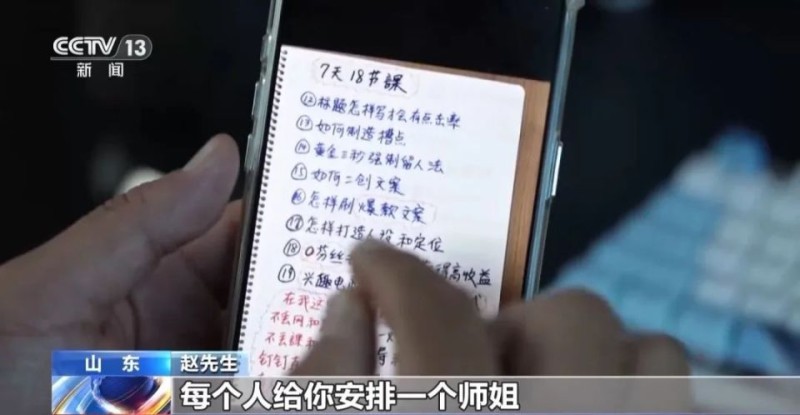 CCTV 13
新闻
7天18节課
⑫标题怎样写才会有点击率
⑬如何制造槽点
⑭黄金三秒强制留人法
⑮如何二创文案
⑯怎样刷爆款文案
⑰怎样打造人设和定位
⑱0芬丝 得高收益
⑲兴趣电
在我这
不丢网和
不丢課
钉钉在
山东 赵先生
每个人给你安排一个师姐